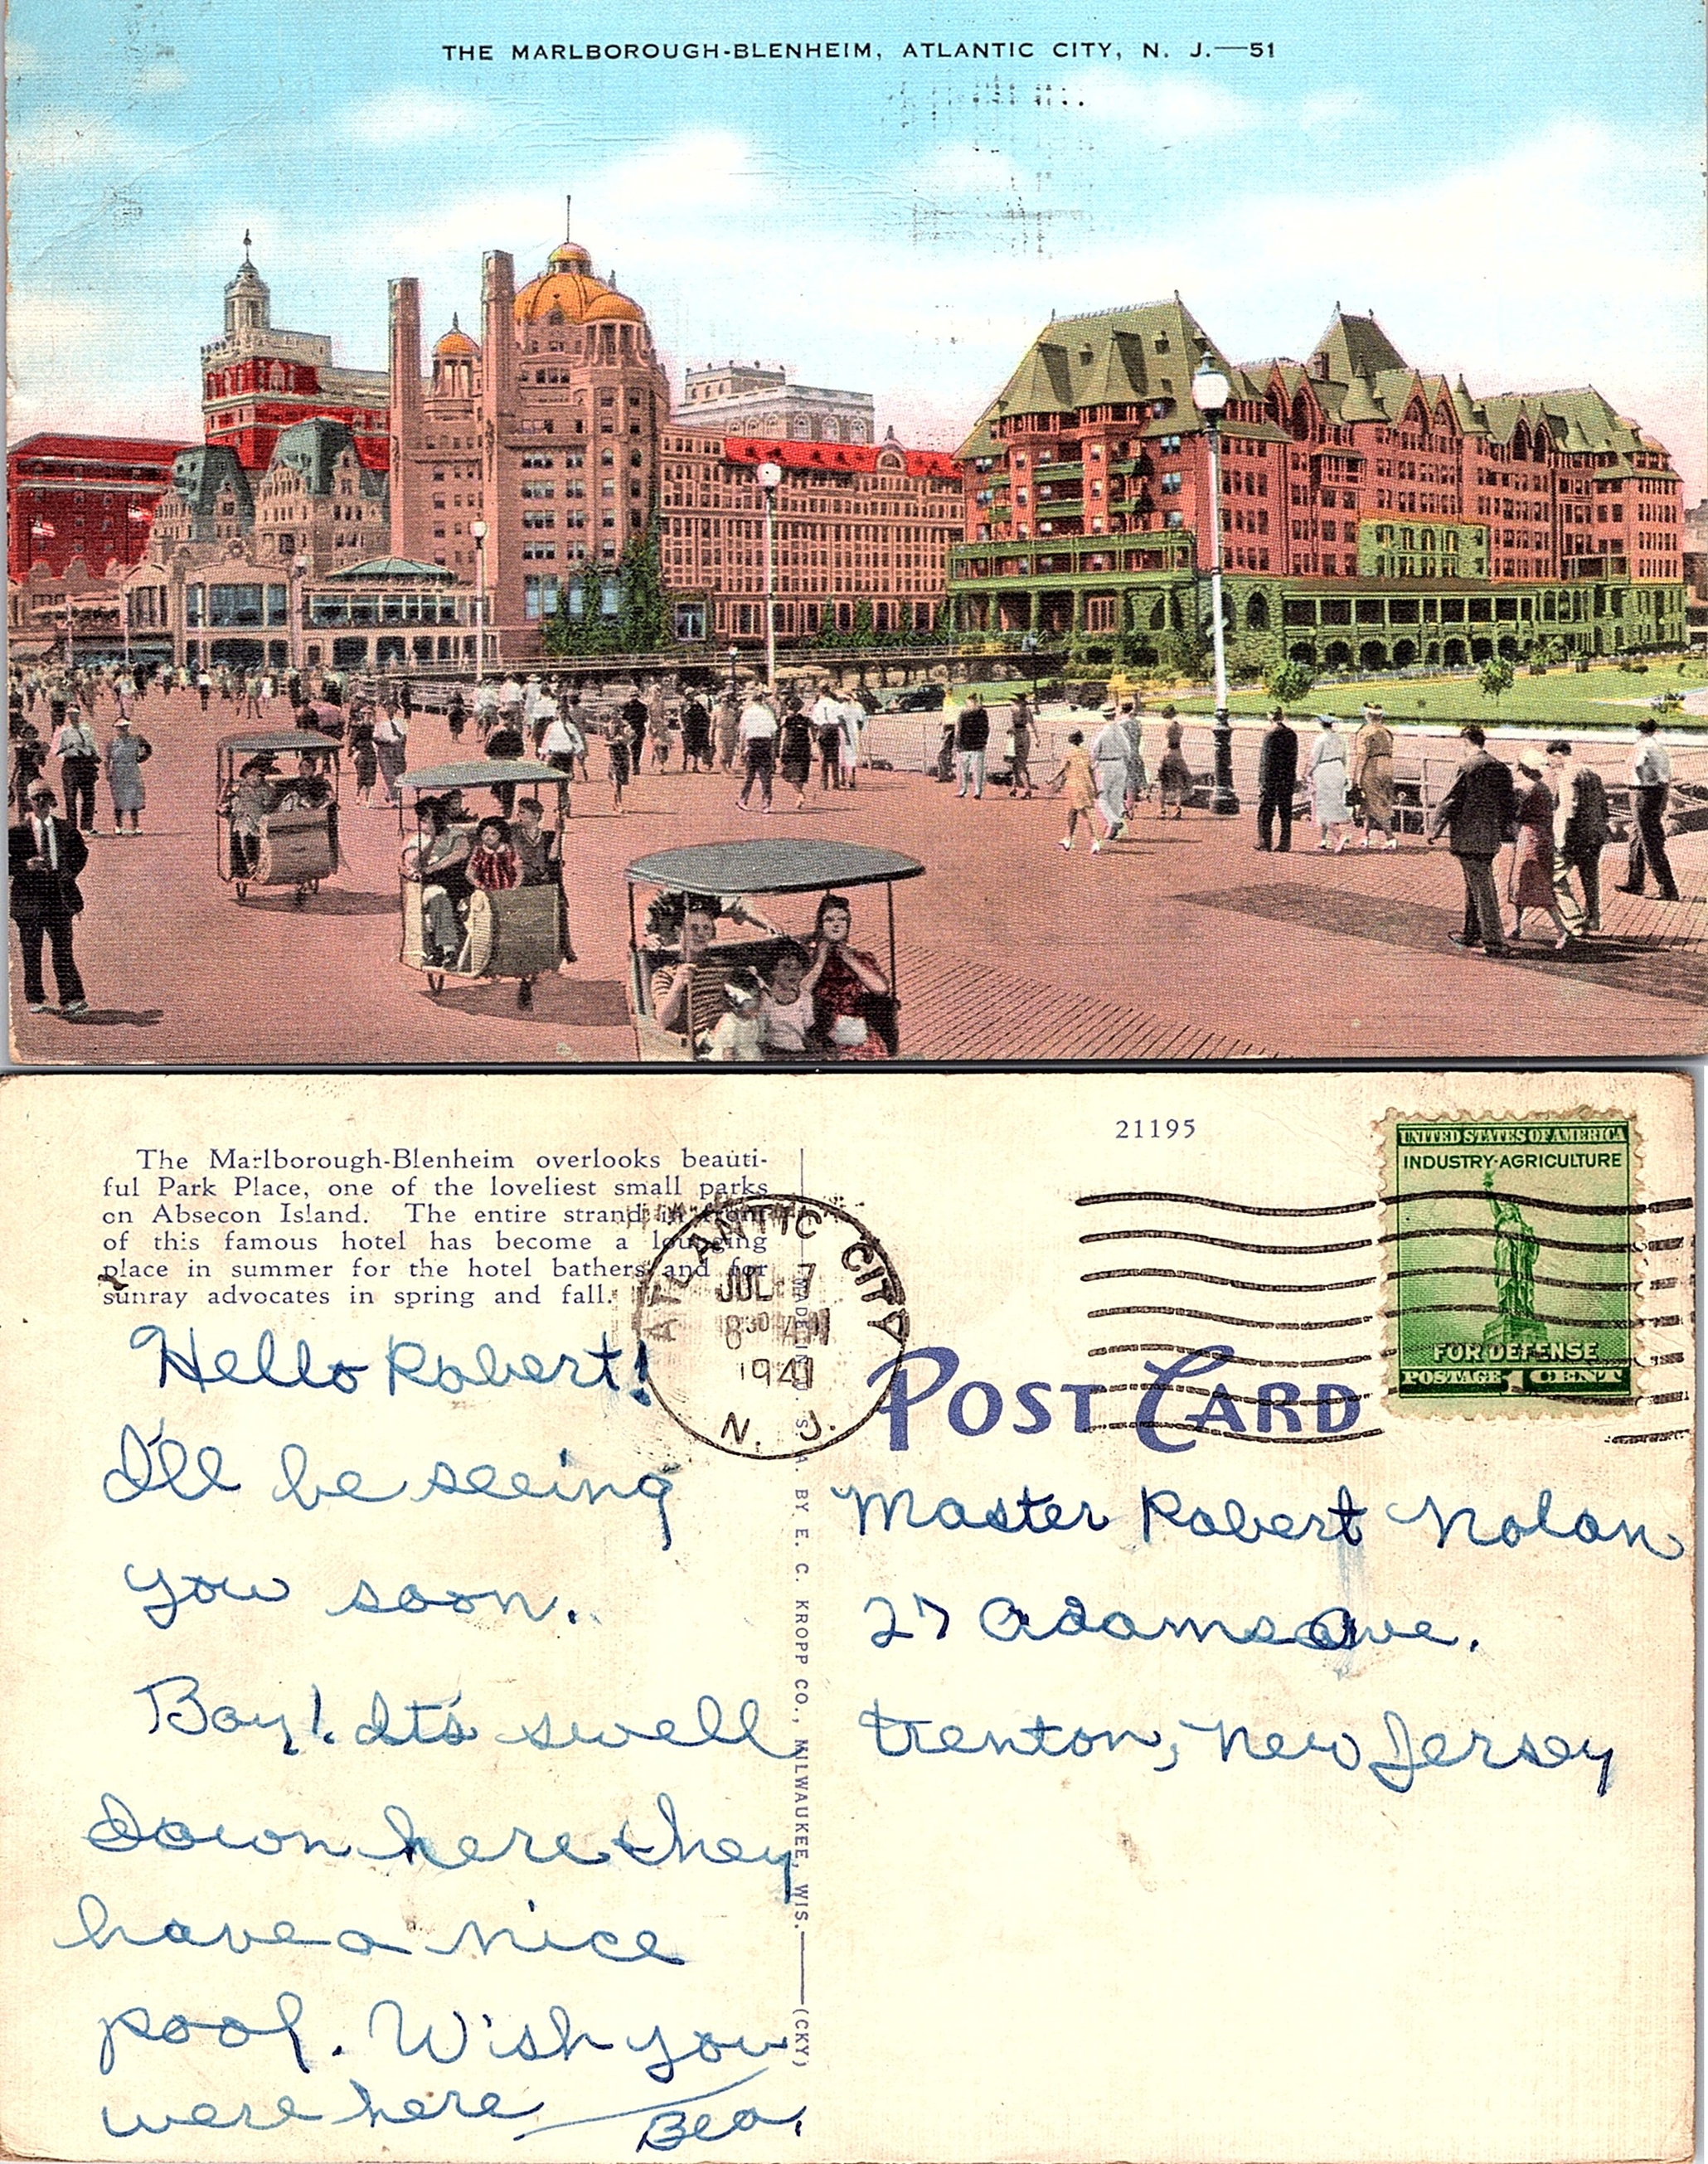 THE MARLBOROUGH-BLENHEIM, ATLANTIC CITY, N. J.—51
The Marlborough-Blenheim overlooks beauti-
ful Park Place, one of the loveliest small parks
on Absecon Island. The entire strand in front
of this famous hotel has become a lounging
place in summer for the hotel bathers and for
sunray advocates in spring and fall.
Hello Robert!
I'll be seeing
you soon.
Boy! It's swell
down here they
have a nice
pool. Wish you
were here
Bea.
ATLANTIC CITY
JUL 7
8 30 AM
1941
N. J.
MADE IN U. S. A. BY E. C. KROPP CO., MILWAUKEE, WIS.—(CKY)
21195
UNITED STATES OF AMERICA
INDUSTRY·AGRICULTURE
FOR DEFENSE
POSTAGE 1 CENT
POST CARD
Master Robert Nolan
27 Adams Ave.
Trenton, New Jersey